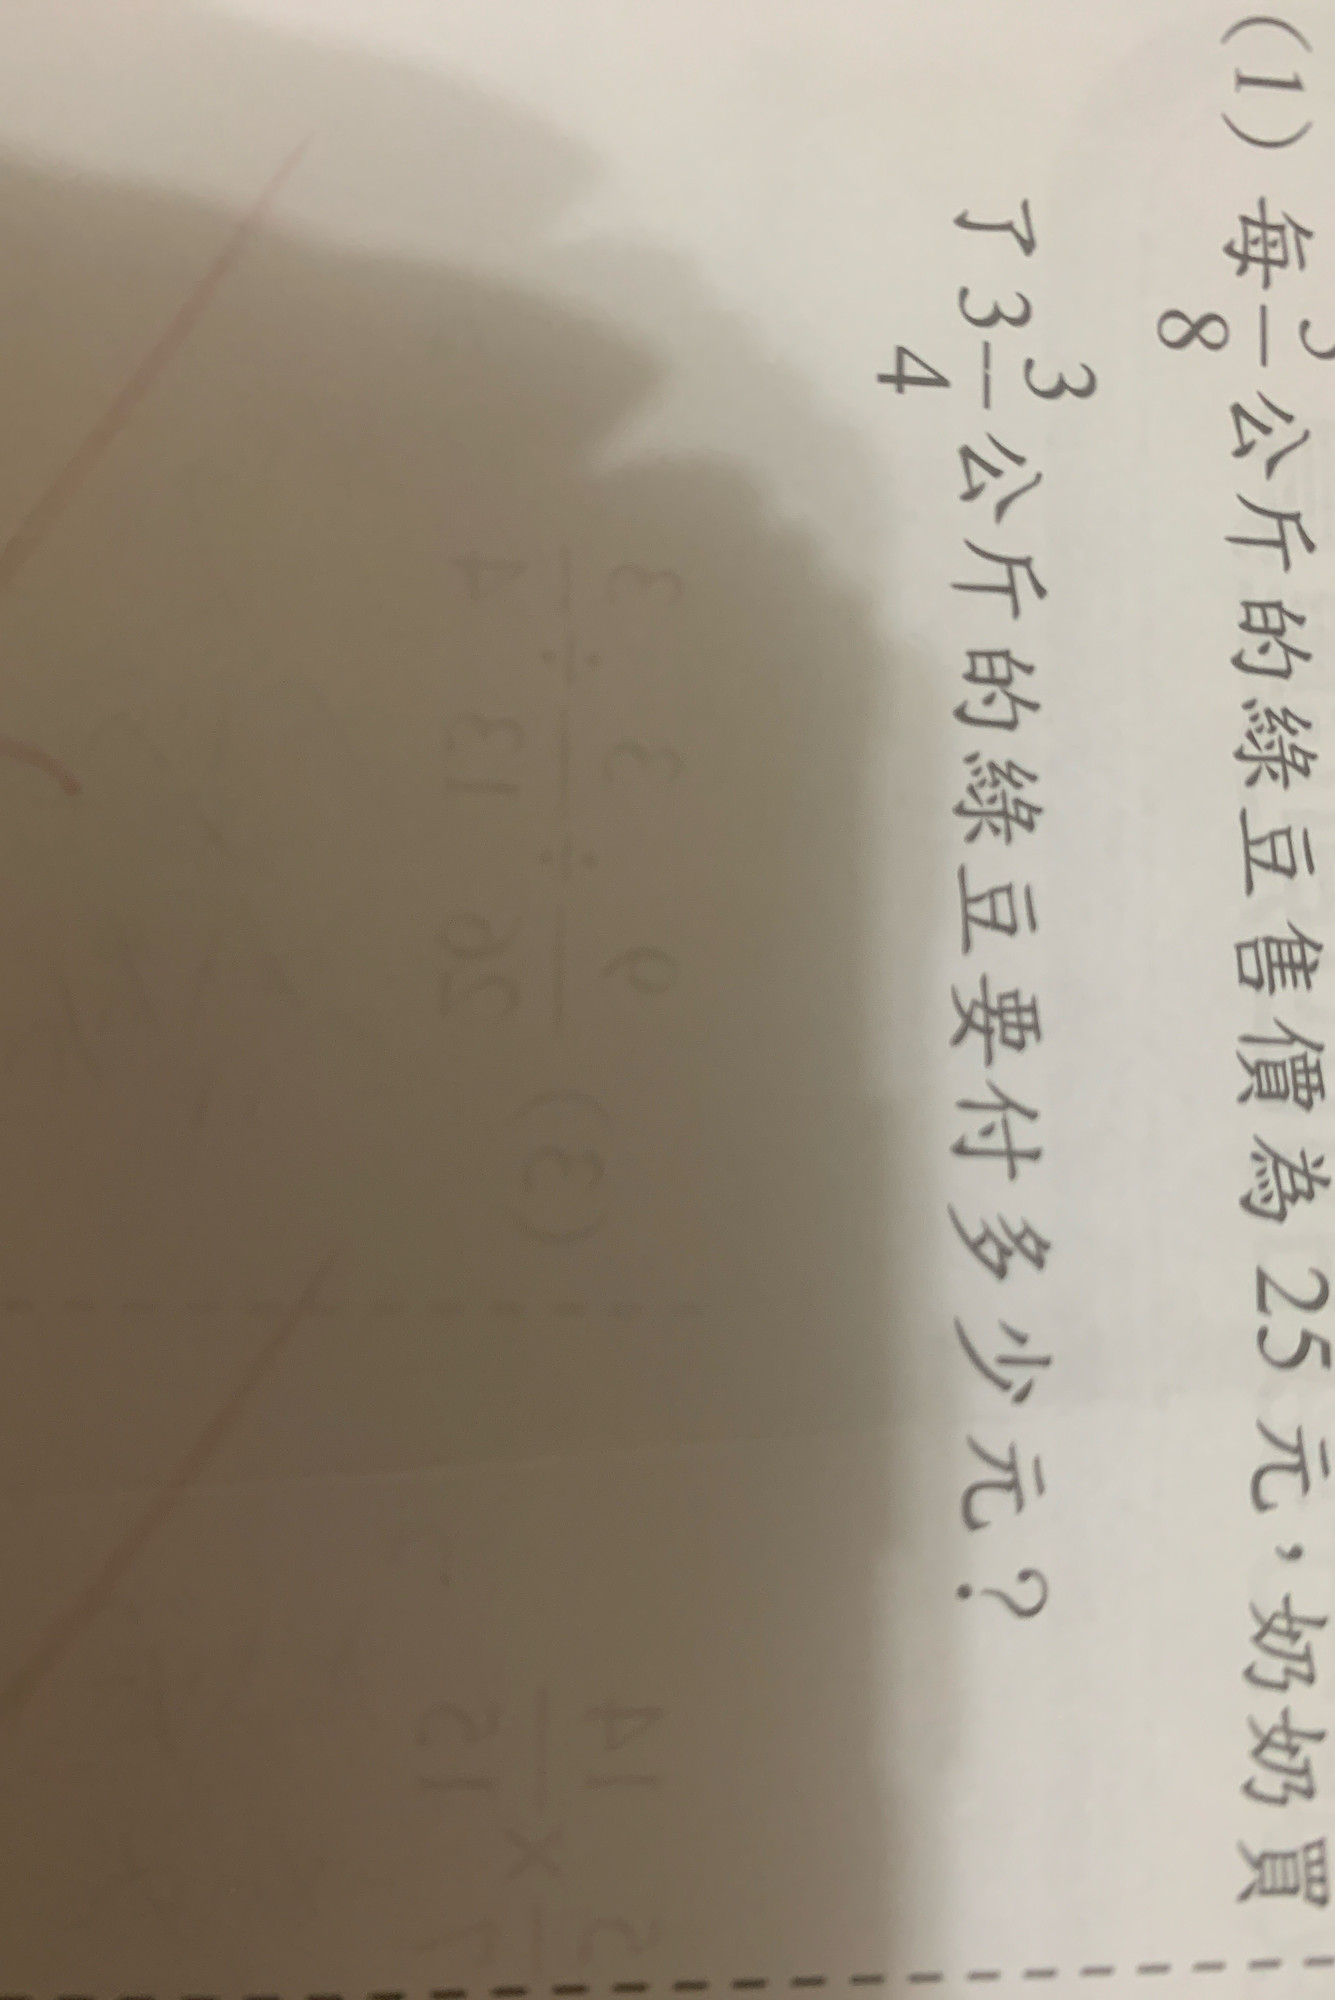 (1) 每 /8 公斤的綠豆售價為 25 元，奶奶買
了 3 3/4 公斤的綠豆要付多少元？